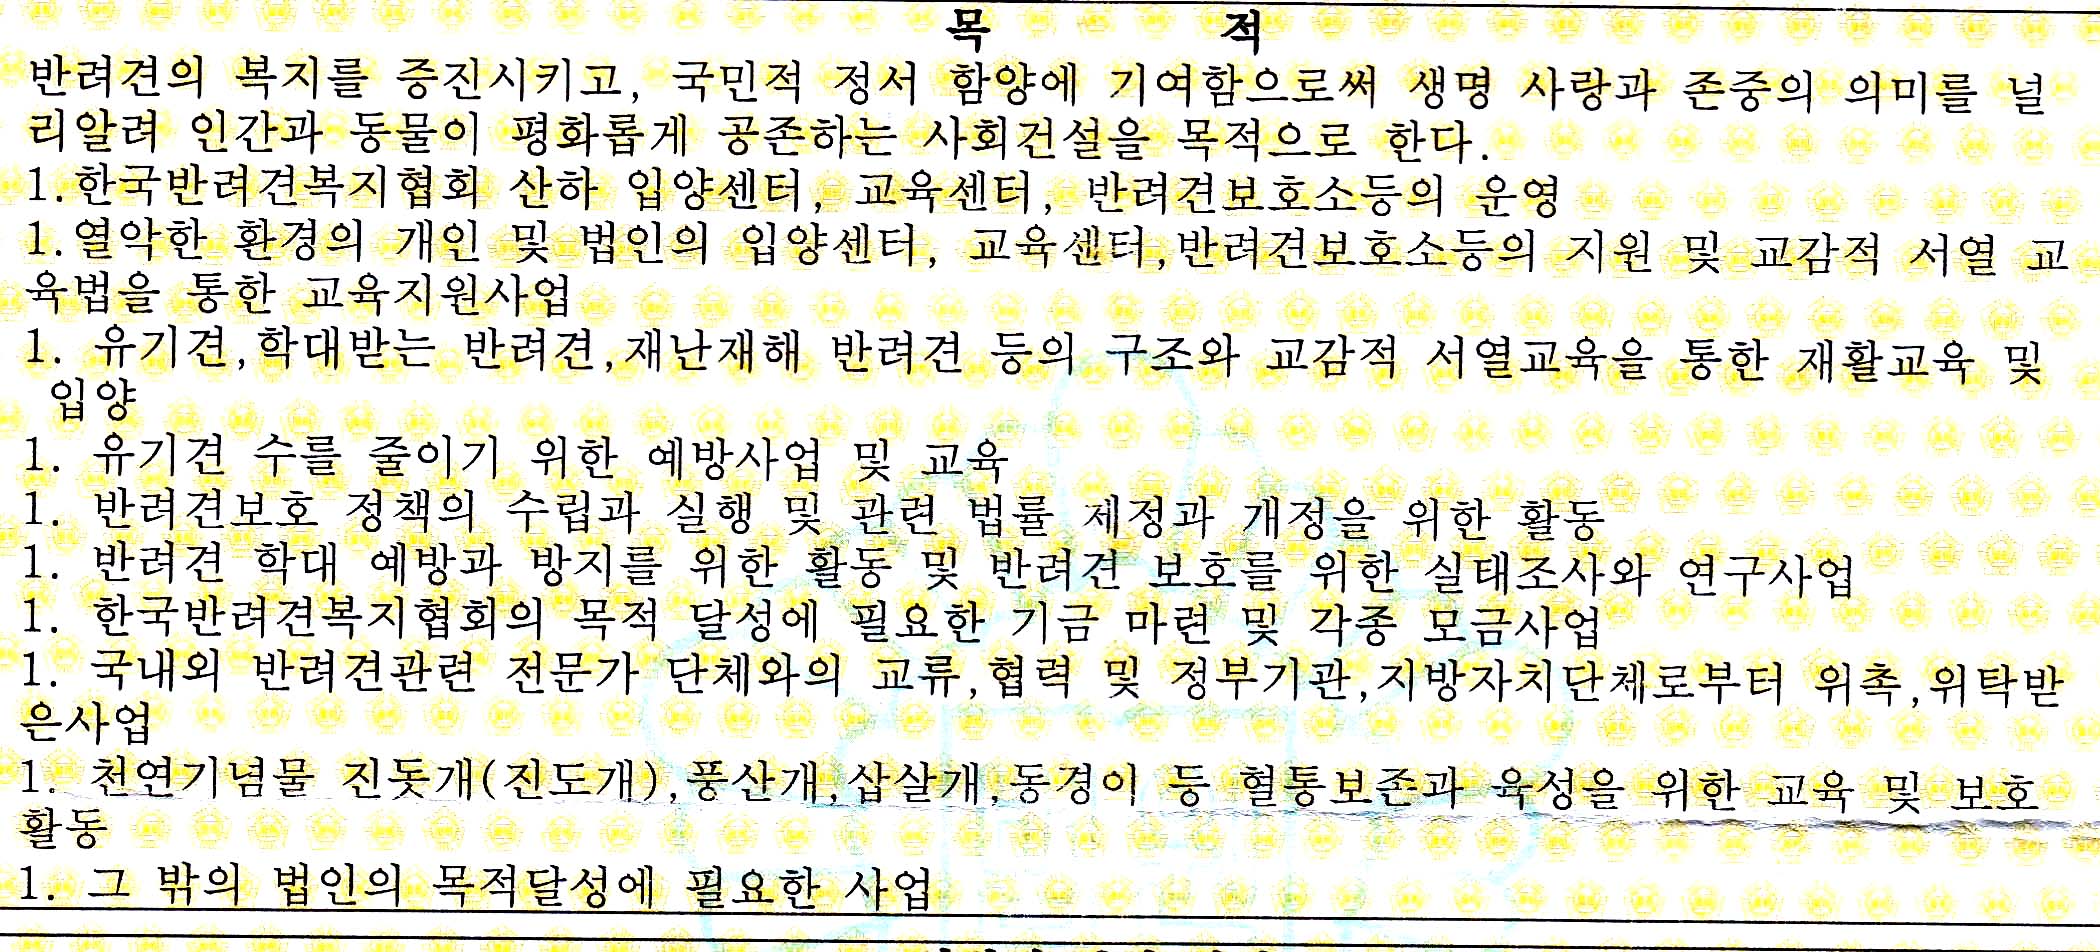 목 적
반려견의 복지를 증진시키고, 국민적 정서 함양에 기여함으로써 생명 사랑과 존중의 의미를 널
리알려 인간과 동물이 평화롭게 공존하는 사회건설을 목적으로 한다.
1.한국반려견복지협회 산하 입양센터, 교육센터, 반려견보호소등의 운영
1.열악한 환경의 개인 및 법인의 입양센터, 교육센터,반려견보호소등의 지원 및 교감적 서열 교
육법을 통한 교육지원사업
1. 유기견,학대받는 반려견,재난재해 반려견 등의 구조와 교감적 서열교육을 통한 재활교육 및
입양
1. 유기견 수를 줄이기 위한 예방사업 및 교육
1. 반려견보호 정책의 수립과 실행 및 관련 법률 제정과 개정을 위한 활동
1. 반려견 학대 예방과 방지를 위한 활동 및 반려견 보호를 위한 실태조사와 연구사업
1. 한국반려견복지협회의 목적 달성에 필요한 기금 마련 및 각종 모금사업
1. 국내외 반려견관련 전문가 단체와의 교류,협력 및 정부기관,지방자치단체로부터 위촉,위탁받
은사업
1. 천연기념물 진돗개(진도개),풍산개,삽살개,동경이 등 혈통보존과 육성을 위한 교육 및 보호
활동
1. 그 밖의 법인의 목적달성에 필요한 사업